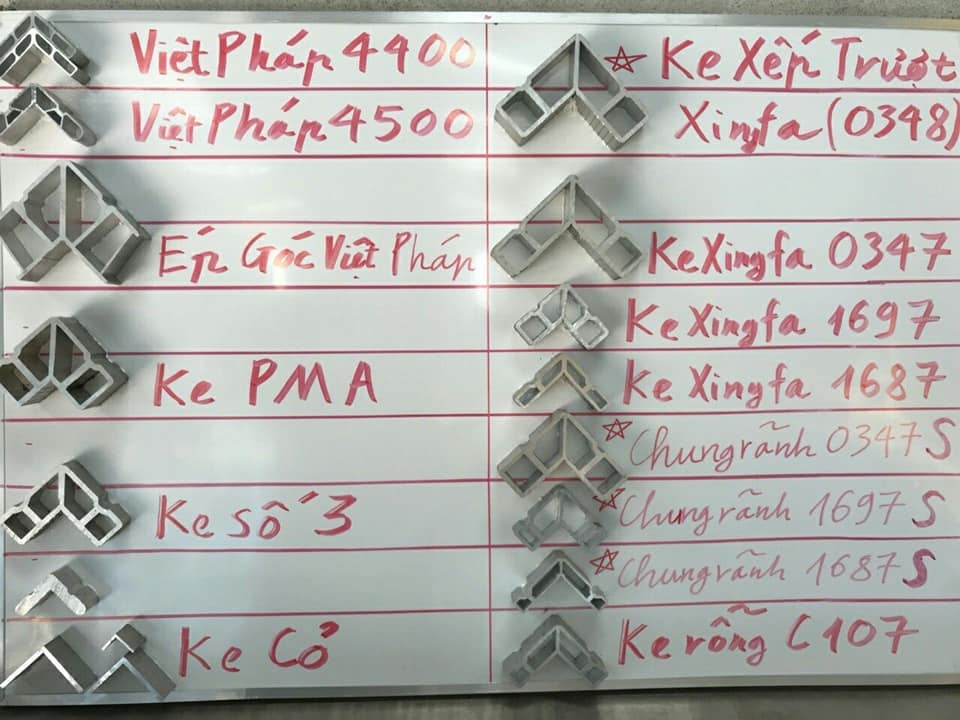 Việt Pháp 4400
Việt Pháp 4500
Ép Góc Việt Pháp
Ke PMA
Ke Số 3
Ke Cỏ
Ke Xếp Trượt
Xingfa (0348)
Ke Xingfa 0347
Ke Xingfa 1697
Ke Xingfa 1687
Chung rãnh 0347S
Chung rãnh 1697S
Chung rãnh 1687S
Ke rỗng C107